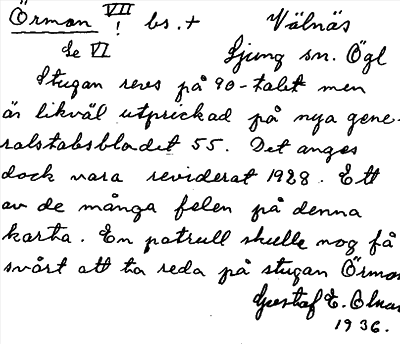 Örman VII ! bs. + Välnäs
Se VI Ljung sn. Ögl
Stugan revs på 90-talet men
är likväl utprickad på nya gene-
ralstabsbladet 55. Det anges
dock vara reviderat 1928. Ett
av de många felen på denna
karta. En patrull skulle nog få
svårt att ta reda på stugan Örman
Gustaf E.
1936.